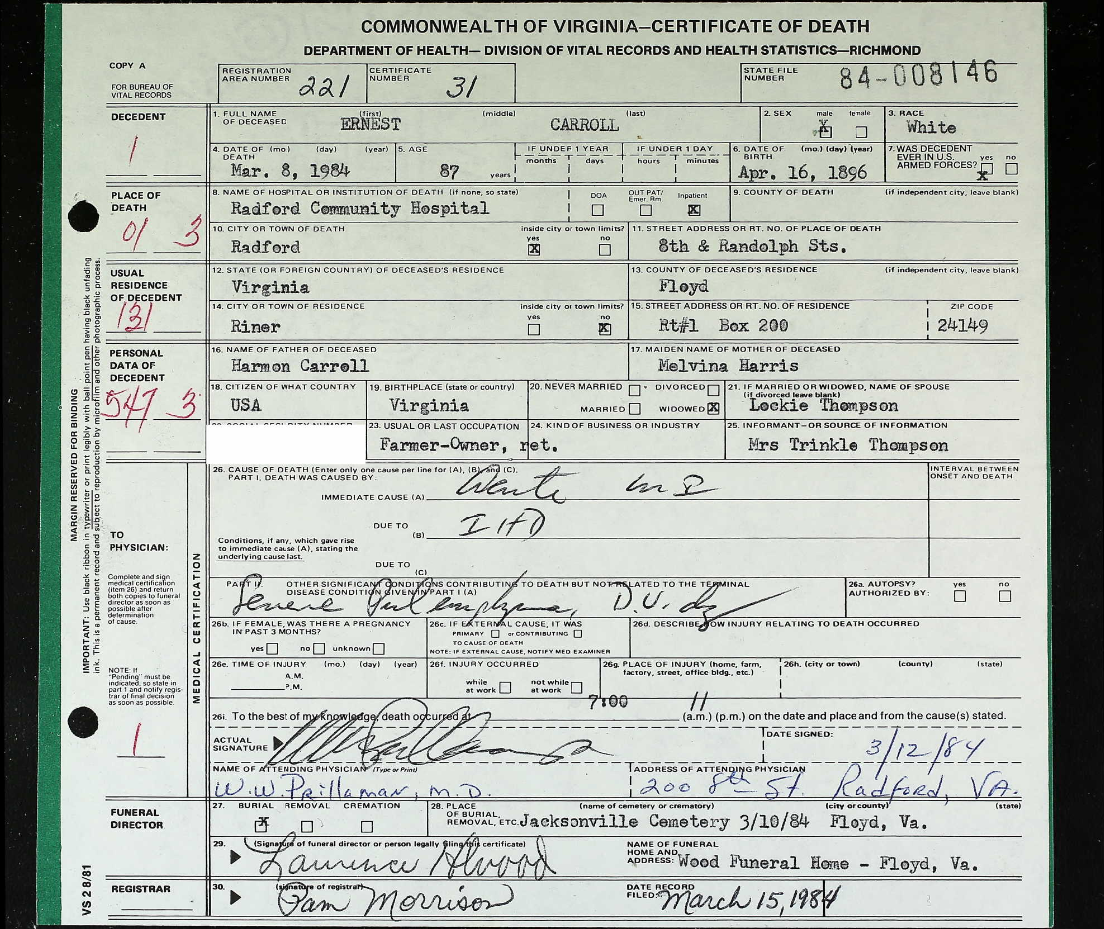 COMMONWEALTH OF VIRGINIA—CERTIFICATE OF DEATH
DEPARTMENT OF HEALTH— DIVISION OF VITAL RECORDS AND HEALTH STATISTICS—RICHMOND
COPY A
FOR BUREAU OF VITAL RECORDS
REGISTRATION AREA NUMBER 221
CERTIFICATE NUMBER 31
STATE FILE NUMBER 84-008146
DECEDENT
1
1. FULL NAME OF DECEASED (first) (middle) (last)
ERNEST CARROLL
2. SEX male X female
3. RACE
White
4. DATE OF DEATH (mo) (day) (year)
Mar. 8, 1984
5. AGE
87 years
IF UNDER 1 YEAR
months days
IF UNDER 1 DAY
hours minutes
6. DATE OF BIRTH (mo.) (day) (year)
Apr. 16, 1896
7. WAS DECEDENT EVER IN U.S. ARMED FORCES? yes no
X
PLACE OF DEATH
01 3
8. NAME OF HOSPITAL OR INSTITUTION OF DEATH (if none, so state)
Radford Community Hospital
DOA OUT PAT/ Emer. Rm Inpatient
X
9. COUNTY OF DEATH (if independent city, leave blank)
10. CITY OR TOWN OF DEATH inside city or town limits?
Radford yes X no
11. STREET ADDRESS OR RT. NO. OF PLACE OF DEATH
8th & Randolph Sts.
USUAL RESIDENCE OF DECEDENT
131
12. STATE (OR FOREIGN COUNTRY) OF DECEASED'S RESIDENCE
Virginia
13. COUNTY OF DECEASED'S RESIDENCE (if independent city, leave blank)
Floyd
14. CITY OR TOWN OF RESIDENCE inside city or town limits?
Riner yes no X
15. STREET ADDRESS OR RT. NO. OF RESIDENCE
Rt#1 Box 200
ZIP CODE
24149
PERSONAL DATA OF DECEDENT
547 3
16. NAME OF FATHER OF DECEASED
Harmon Carroll
17. MAIDEN NAME OF MOTHER OF DECEASED
Melvina Harris
18. CITIZEN OF WHAT COUNTRY
USA
19. BIRTHPLACE (state or country)
Virginia
20. NEVER MARRIED DIVORCED
MARRIED WIDOWED X
21. IF MARRIED OR WIDOWED, NAME OF SPOUSE
(if divorced leave blank)
Lockie Thompson
23. USUAL OR LAST OCCUPATION
Farmer-Owner, ret.
24. KIND OF BUSINESS OR INDUSTRY
25. INFORMANT—OR SOURCE OF INFORMATION
Mrs Trinkle Thompson
MARGIN RESERVED FOR BINDING
IMPORTANT: Use black ribbon in typewriter or print legibly with ball point pen having black unfading
ink. This is a permanent record and subject to reproduction by microfilm and other photographic process.
TO PHYSICIAN:
Complete and sign medical certification (item 26) and return both copies to funeral director as soon as possible after determination of cause.
NOTE: If "Pending" must be indicated, so state in part 1 and notify registrar of final decision as soon as possible.
1
MEDICAL CERTIFICATION
26. CAUSE OF DEATH (Enter only one cause per line for (A), (B), and (C).
PART I, DEATH WAS CAUSED BY:
INTERVAL BETWEEN ONSET AND DEATH
IMMEDIATE CAUSE (A) Acute M I
DUE TO (B) IHD
Conditions, if any, which gave rise to immediate cause (A), stating the underlying cause last.
DUE TO (C)
PART II. OTHER SIGNIFICANT CONDITIONS CONTRIBUTING TO DEATH BUT NOT RELATED TO THE TERMINAL
DISEASE CONDITION GIVEN IN PART I (A)
Severe Pul emphysema,
26a. AUTOPSY? AUTHORIZED BY: yes no
26b. IF FEMALE, WAS THERE A PREGNANCY IN PAST 3 MONTHS?
yes no unknown
26c. IF EXTERNAL CAUSE, IT WAS
PRIMARY or CONTRIBUTING
TO CAUSE OF DEATH
NOTE: IF EXTERNAL CAUSE, NOTIFY MED EXAMINER
26d. DESCRIBE HOW INJURY RELATING TO DEATH OCCURRED
26e. TIME OF INJURY (mo.) (day) (year)
A.M.
P.M.
26f. INJURY OCCURRED
while at work not while at work
26g. PLACE OF INJURY (home, farm, factory, street, office bldg., etc.)
26h. (city or town) (county) (state)
7:00
26i. To the best of my knowledge, death occurred at (a.m.) (p.m.) on the date and place and from the cause(s) stated.
ACTUAL SIGNATURE
DATE SIGNED:
3/12/84
NAME OF ATTENDING PHYSICIAN (Type or Print)
W.W. Prillaman, M.D.
ADDRESS OF ATTENDING PHYSICIAN
200 8th St. Radford, VA.
FUNERAL DIRECTOR
27. BURIAL REMOVAL CREMATION
X
28. PLACE OF BURIAL, REMOVAL, ETC. (name of cemetery or crematory) (city or county) (state)
Jacksonville Cemetery 3/10/84 Floyd, Va.
29. (Signature of funeral director or person legally filing this certificate)
Lawrence Alwood
NAME OF FUNERAL HOME AND ADDRESS:
Wood Funeral Home - Floyd, Va.
REGISTRAR
30. (signature of registrar)
Pam Morrison
DATE RECORD FILED:
March 15, 1984
VS 2 8/81